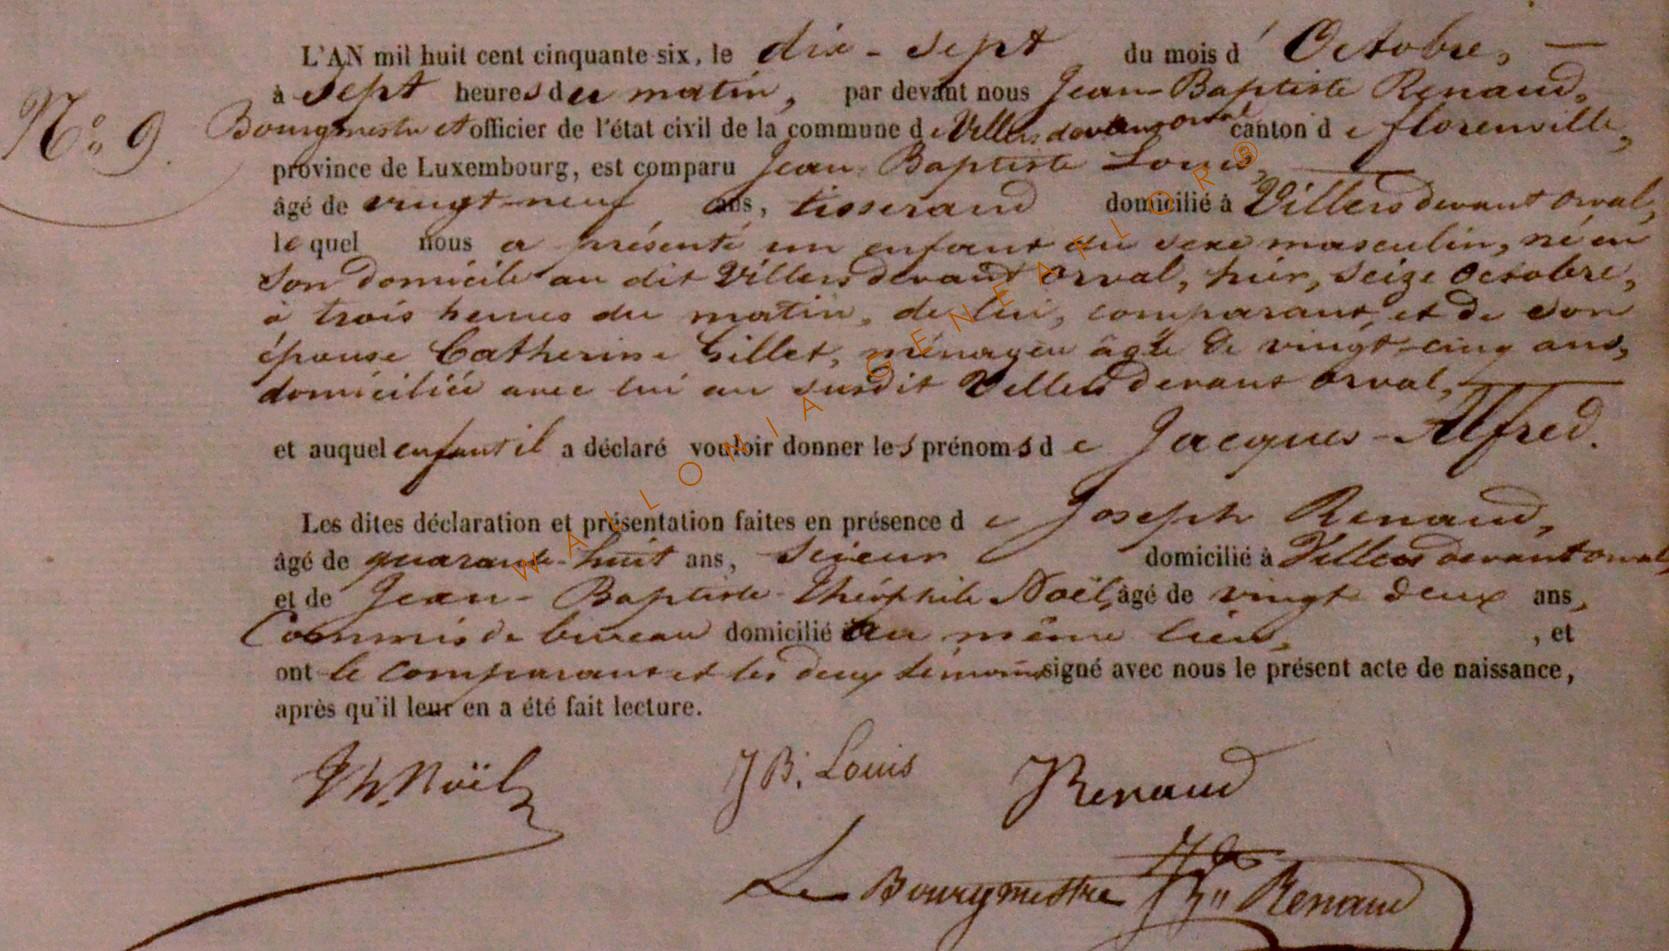 L'AN mil huit cent cinquante-six, le dix-sept du mois d'Octobre,
à sept heures du matin, par devant nous Jean-Baptiste Renaud,
N° 9. Bourgmestre et officier de l'état civil de la commune de Villers devant orval canton de florenville,
province de Luxembourg, est comparu Jean Baptiste Louis,
âgé de vingt-neuf ans, tisserand domicilié à Villers devant orval,
lequel nous a présenté un enfant du sexe masculin, né en
son domicile au dit Villers devant orval, hier, seize Octobre,
à trois heures du matin, de lui, comparant, et de son
épouse Catherine Gillet, ménagère âgée de vingt-cinq ans,
domiciliée avec lui au susdit Villers devant orval,
et auquel enfant il a déclaré vouloir donner les prénoms de Jacques-Alfred.
Les dites déclaration et présentation faites en présence de Joseph Renaud,
âgé de quarante-huit ans, scieur domicilié à Villers devant orval,
et de Jean-Baptiste-Théophile Noël, âgé de vingt deux ans,
Commis de bureau domicilié au même lieu, , et
ont le comparant et les deux témoins signé avec nous le présent acte de naissance,
après qu'il leur en a été fait lecture.
Th. Noël JB. Louis JRenaud
Le Bourgmestre Renaud
WALLONIA GENEALOR ®